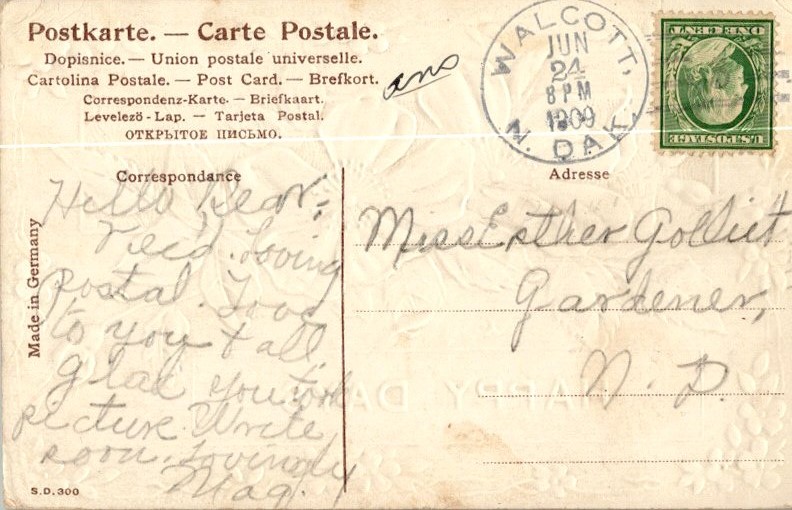 Postkarte. — Carte Postale.
Dopisnice. — Union postale universelle.
Cartolina Postale. — Post Card. — Brefkort.
Correspondenz-Karte. — Briefkaart.
Levelező-Lap. — Tarjeta Postal.
ОТКРЫТОЕ ПИСЬМО.
ans
WALCOTT,
JUN
24
8 PM
1909
N. DAK.
U.S. POSTAGE
ONE CENT
Correspondance
Adresse
Made in Germany
Hello Dear;
Rec'd. loving
postal. Love
to you & all,
glad you took
picture. Write
soon. Lovingly
Mag.
Miss Esther Golliet
Gardener,
N. D.
HAPPY DA
S.D.300